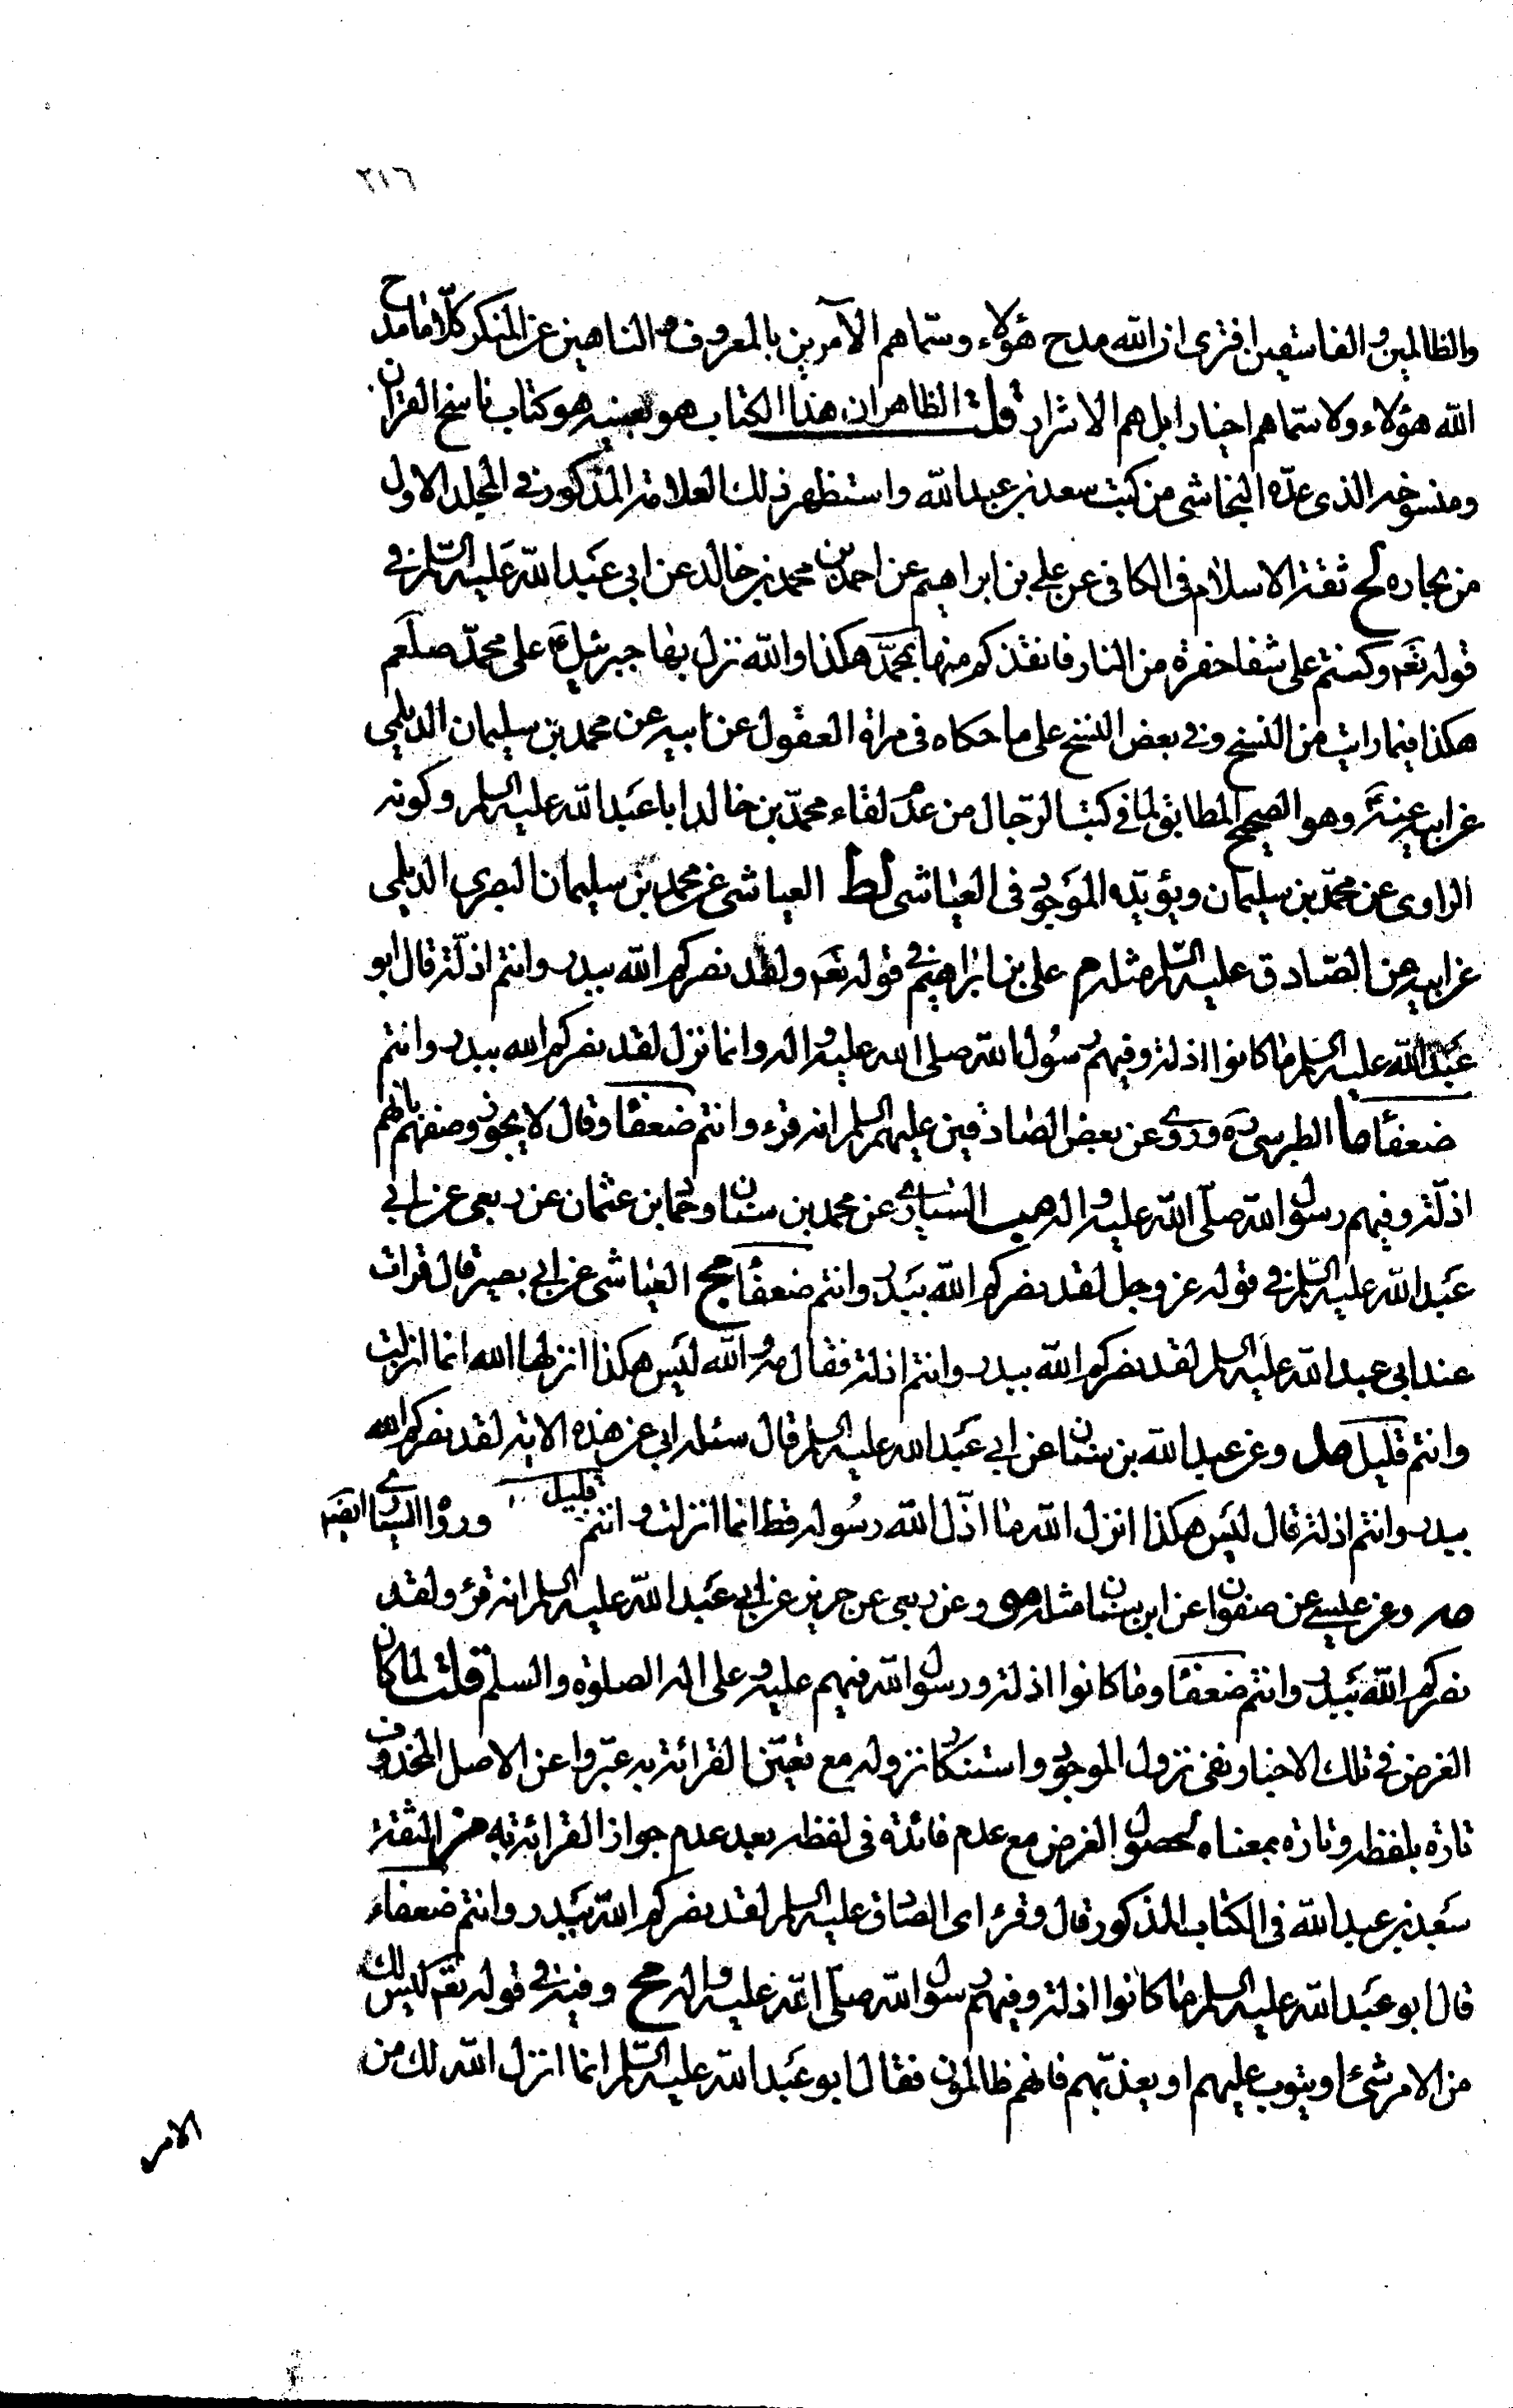 ٢١٦
والظالمين والفاسقين افترى ان الله مدح هؤلاء وسمّاهم الآمرين بالمعروف والناهين عن المنكر كلّا ما مدح
الله هؤلاء ولا سمّاهم اخيارا بل هم الاشرار قلت الظاهر ان هذا الكتاب هو بعينه هو كتاب ناسخ القران
ومنسوخه الذى عدّه النجاشى من كتب سعد بن عبدالله واستظهر ذلك العلامة المذكور فى المجلد الاول
من بحاره لح ثقة الاسلام فى الكافى عن على بن ابراهيم عن احمد بن محمد بن خالد عن ابى عبد الله عليه السّلم فى
قوله تعم وكنتم على شفا حفرة من النار فانقذكم منها بمحمّد هكذا والله نزل بها جبرئيل ع على محمّد صلعم
هكذا فيما رايت من النسخ وفى بعض النسخ على ما حكاه فى مراة العقول عن ابيه عن محمد بن سليمان الديلمى
عن ابيه عنه ع وهو الصحيح المطابق لما فى كتب الرّجال من عدم لقاء محمّد بن خالد ابا عبد الله عليه السلم وكونه
الراوى عن محمّد بن سليمان ويؤيّده الموجود فى العياشى لط العياشى عن محمد بن سليمان البصرى الديلمى
عن ابيه عن الصّادق عليه السّلم مثله م على بن ابراهيم فى قوله تعم ولقد نصركم الله ببدر وانتم اذلّة قال ابو
عبد الله عليه السّلم ما كانوا اذلة وفيهم رسول الله صلى الله عليه واله وانما نزل لقد نصركم الله ببدر وانتم
ضعفاء ما الطبرسى ره وروى عن بعض الصادقين عليهم السلم انه قرء وانتم ضعفاء وقال لا يجوز وصفهم بانهم
اذلّة وفيهم رسول الله صلّى الله عليه واله مب السيّارى عن محمد بن سنان وحماد بن عثمان عن ربعى عن ابى
عبد الله عليه السّلم فى قوله عز وجل لقد نصركم الله ببدر وانتم ضعفاء مج العياشى عن ابى بصير قال قرات
عند ابى عبد الله عليه السلم لقد نصركم الله ببدر وانتم اذلة فقال مه والله ليس هكذا انزلها الله انما انزلت
وانتم قليل مد وعن عبد الله بن سنان عن ابى عبد الله عليه السلم قال سئله ابى عن هذه الاية لقد نصركم الله
ببدر وانتم اذلة قال ليس هكذا انزل الله ما اذّل الله رسوله قط انما انزلت وانتم قليل ورواه السيارى ايضا
مه وعن عيسى عن صفوان عن ابن سنان مثله مو وعن ربعى عن حريز عن ابى عبد الله عليه السلم انه قرء ولقد
نصركم الله ببدر وانتم ضعفاء وما كانوا اذلة ورسول الله فيهم عليه وعلى اله الصلوة والسلم قلت لما كان
الغرض فى تلك الاخبار نفى نزول الموجود واستنكار نزوله مع تعيّن القرائة به عبّروا عن الاصل المحذوف
تارة بلفظه وتارة بمعناه لحصول الغرض مع عدم فائدة فى لفظه بعد عدم جواز القرائة به مز الثقة
سعد بن عبد الله فى الكتاب المذكور قال وقرء اى الصادق عليه السلم لقد نصركم الله ببدر وانتم ضعفاء
قال ابو عبد الله عليه السلم ما كانوا اذلة وفيهم رسول الله صلّى الله عليه واله مح وفيه فى قوله تعم ليس لك
من الامر شئ او يتوب عليهم او يعذّبهم فانهم ظالمون فقال ابو عبد الله عليه السّلم انما انزل الله لك من
الامر